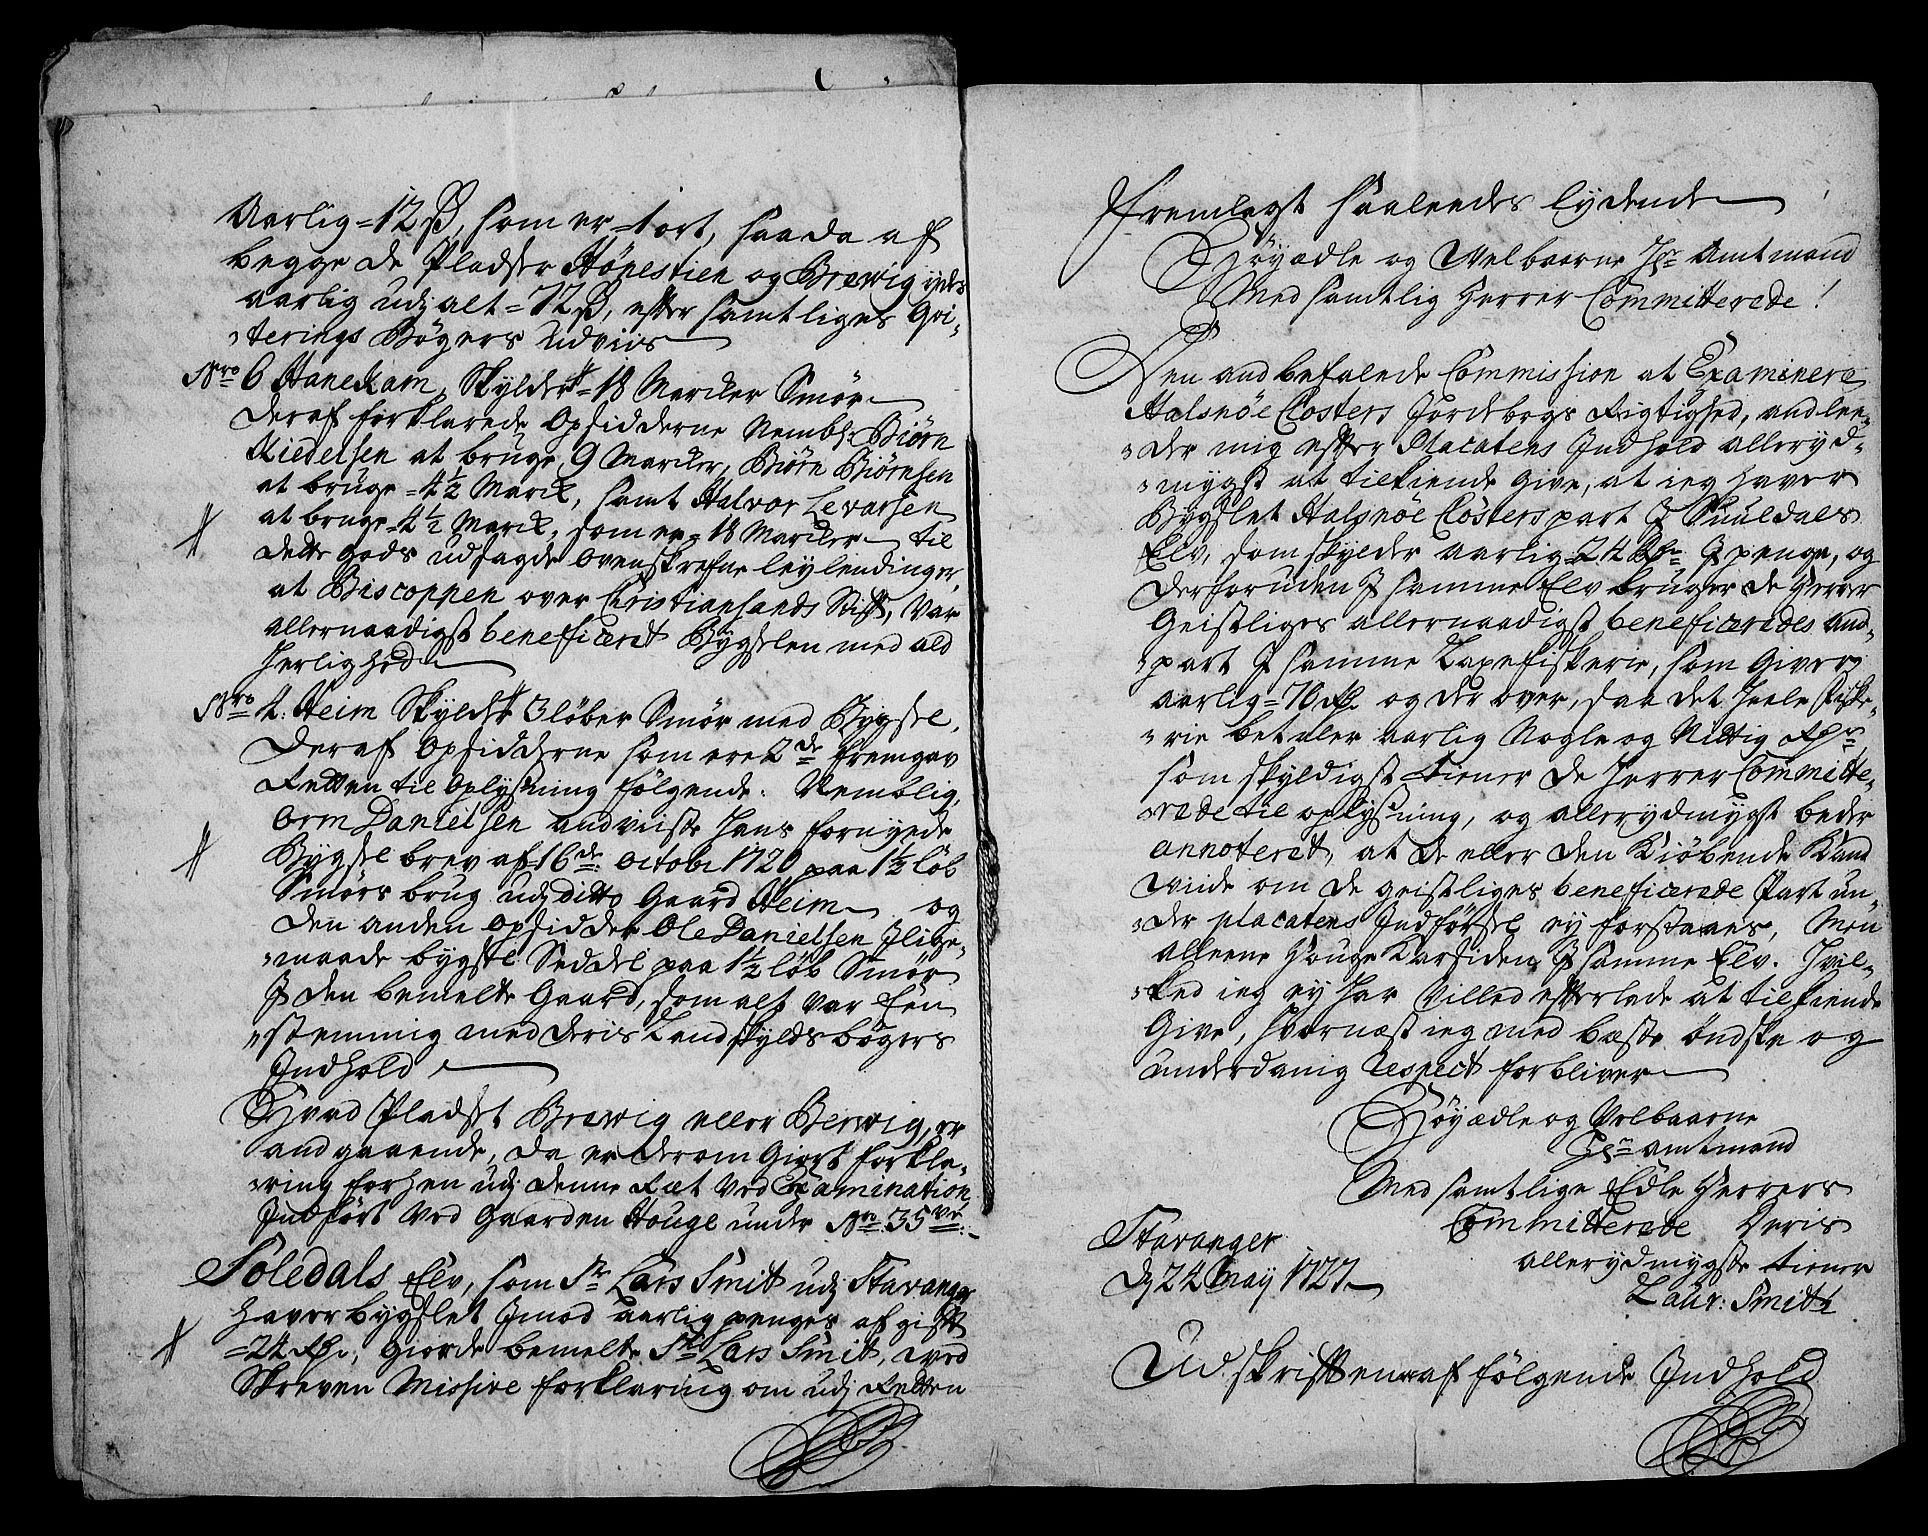 Aarlig = 12 ß, som er = 1 ort, saa da af
begge de Pladser Hönestien og Brewig ydes
aarlig udj alt = 72 ß, efter samtliges Qvi-
terings Bøgers Udviis
Nro 6 Hanekam, Skylder = 18 Marcker Smör
deraf forklarede Opsidderne Nembl: Biörn
Kieteldsen at bruge 9 Marcker, Biörn Biörnsen
at bruge = 4½ Marck, samt Halvor Levarsen
at bruge = 4½ Marck, som er = 18 Marcker til
dette gods udsagde ovenskrefne leylendinger,
at Biscoppen over Christiansands Stift, var
allernaadigst beneficeret Bygselen med ald
herlighed
Nro 4. Heim Skylder 3 löber Smör med Bygsel,
deraf opsidderne som ere 2de fremgav
Retten til oplysning følgende: Nemblig,
Orm Danielsen andviiste hans fornyede
Bygsel brev af 16de octobr 1720 paa 1½ löb
Smörs brug udj ditto Gaard Heim og
den anden opsidder Ole Danielsen Ilige-
maade bygsel Seddel paa 1½ löb Smör
J den bemelte Gaard, som alt var een
stemmig med deris Landskylds bögers
Indhold
Hvad Pladset Brewig eller Berwig, er
andgaaende, da er derom Giort forkla-
ring forhen udj denne Ræt ved Examination
Indført ved Gaarden Houge under No 35ve:
Soledals Elv, som Sr Lars Smit udj Stavanger
haver bygslet Jmod aarlig penges afgift
= 24 Rdr, Giorde bemelte Sr Lars Smit, wed
Skreven Missive forklaring om udj Retten
Fremlagt saaleedes lydende
Höyædle og Welbaarne Hr Amtmand
Med samtlig Herrer Committerede!
Den andbefalede Commission at Examinere
Halsnöe Closters Jordebogs Rigtighed, andlee-
der mig efter Placatens Indhold alleryd-
mygst at tilkiende give, at ieg haver
Bygslet Halsnöe Closters part J Suuldals
Elv, som skylder aarlig 24 Rdr J penge, og
derforuden J samme Elv bruger de Herrer
Geistliges allernaadigst beneficeredes And-
part J samme Laxefiskerie, som giver
aarlig = 70 og der over, saa det heele Fiske-
rie betaler aarlig Nogle og Nittig Rdr
som skyldigst tiener de Herrer Committe-
rede til oplysning, og allerydmygst beder
annoteret, at de eller den Kiöbende kand
vide om de geistliges beneficerede Part un-
der placatens Indførsel ey forstaaes, Men
alleene Houge Karsiden J samme Elv. Hvil-
ked ieg ey har villed efterlade at tilkiende
Give, hvornæst ieg med bæste öndske og
underdanig respect forbliver
Höyædle og Velbaarne
Hr amtmand
Med samtlige Edle Herrers
Committerede Deris
allerydmygste tiener
Laur: Smith
Stavanger
d 24 May 1727
Udskriften af følgende Indhold